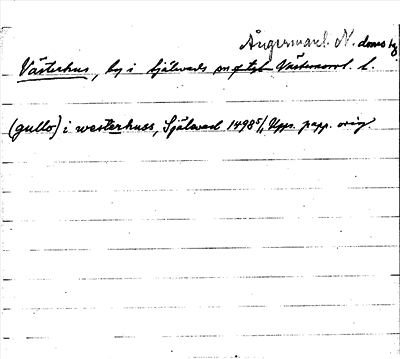 Ångermanl. N. doms bg
Västerhus, by i Själevads sn o tgl Västernorrl. l.
(gullo) i westerhuss, Siälwad 1498 5/1 Upps. papp. orig.